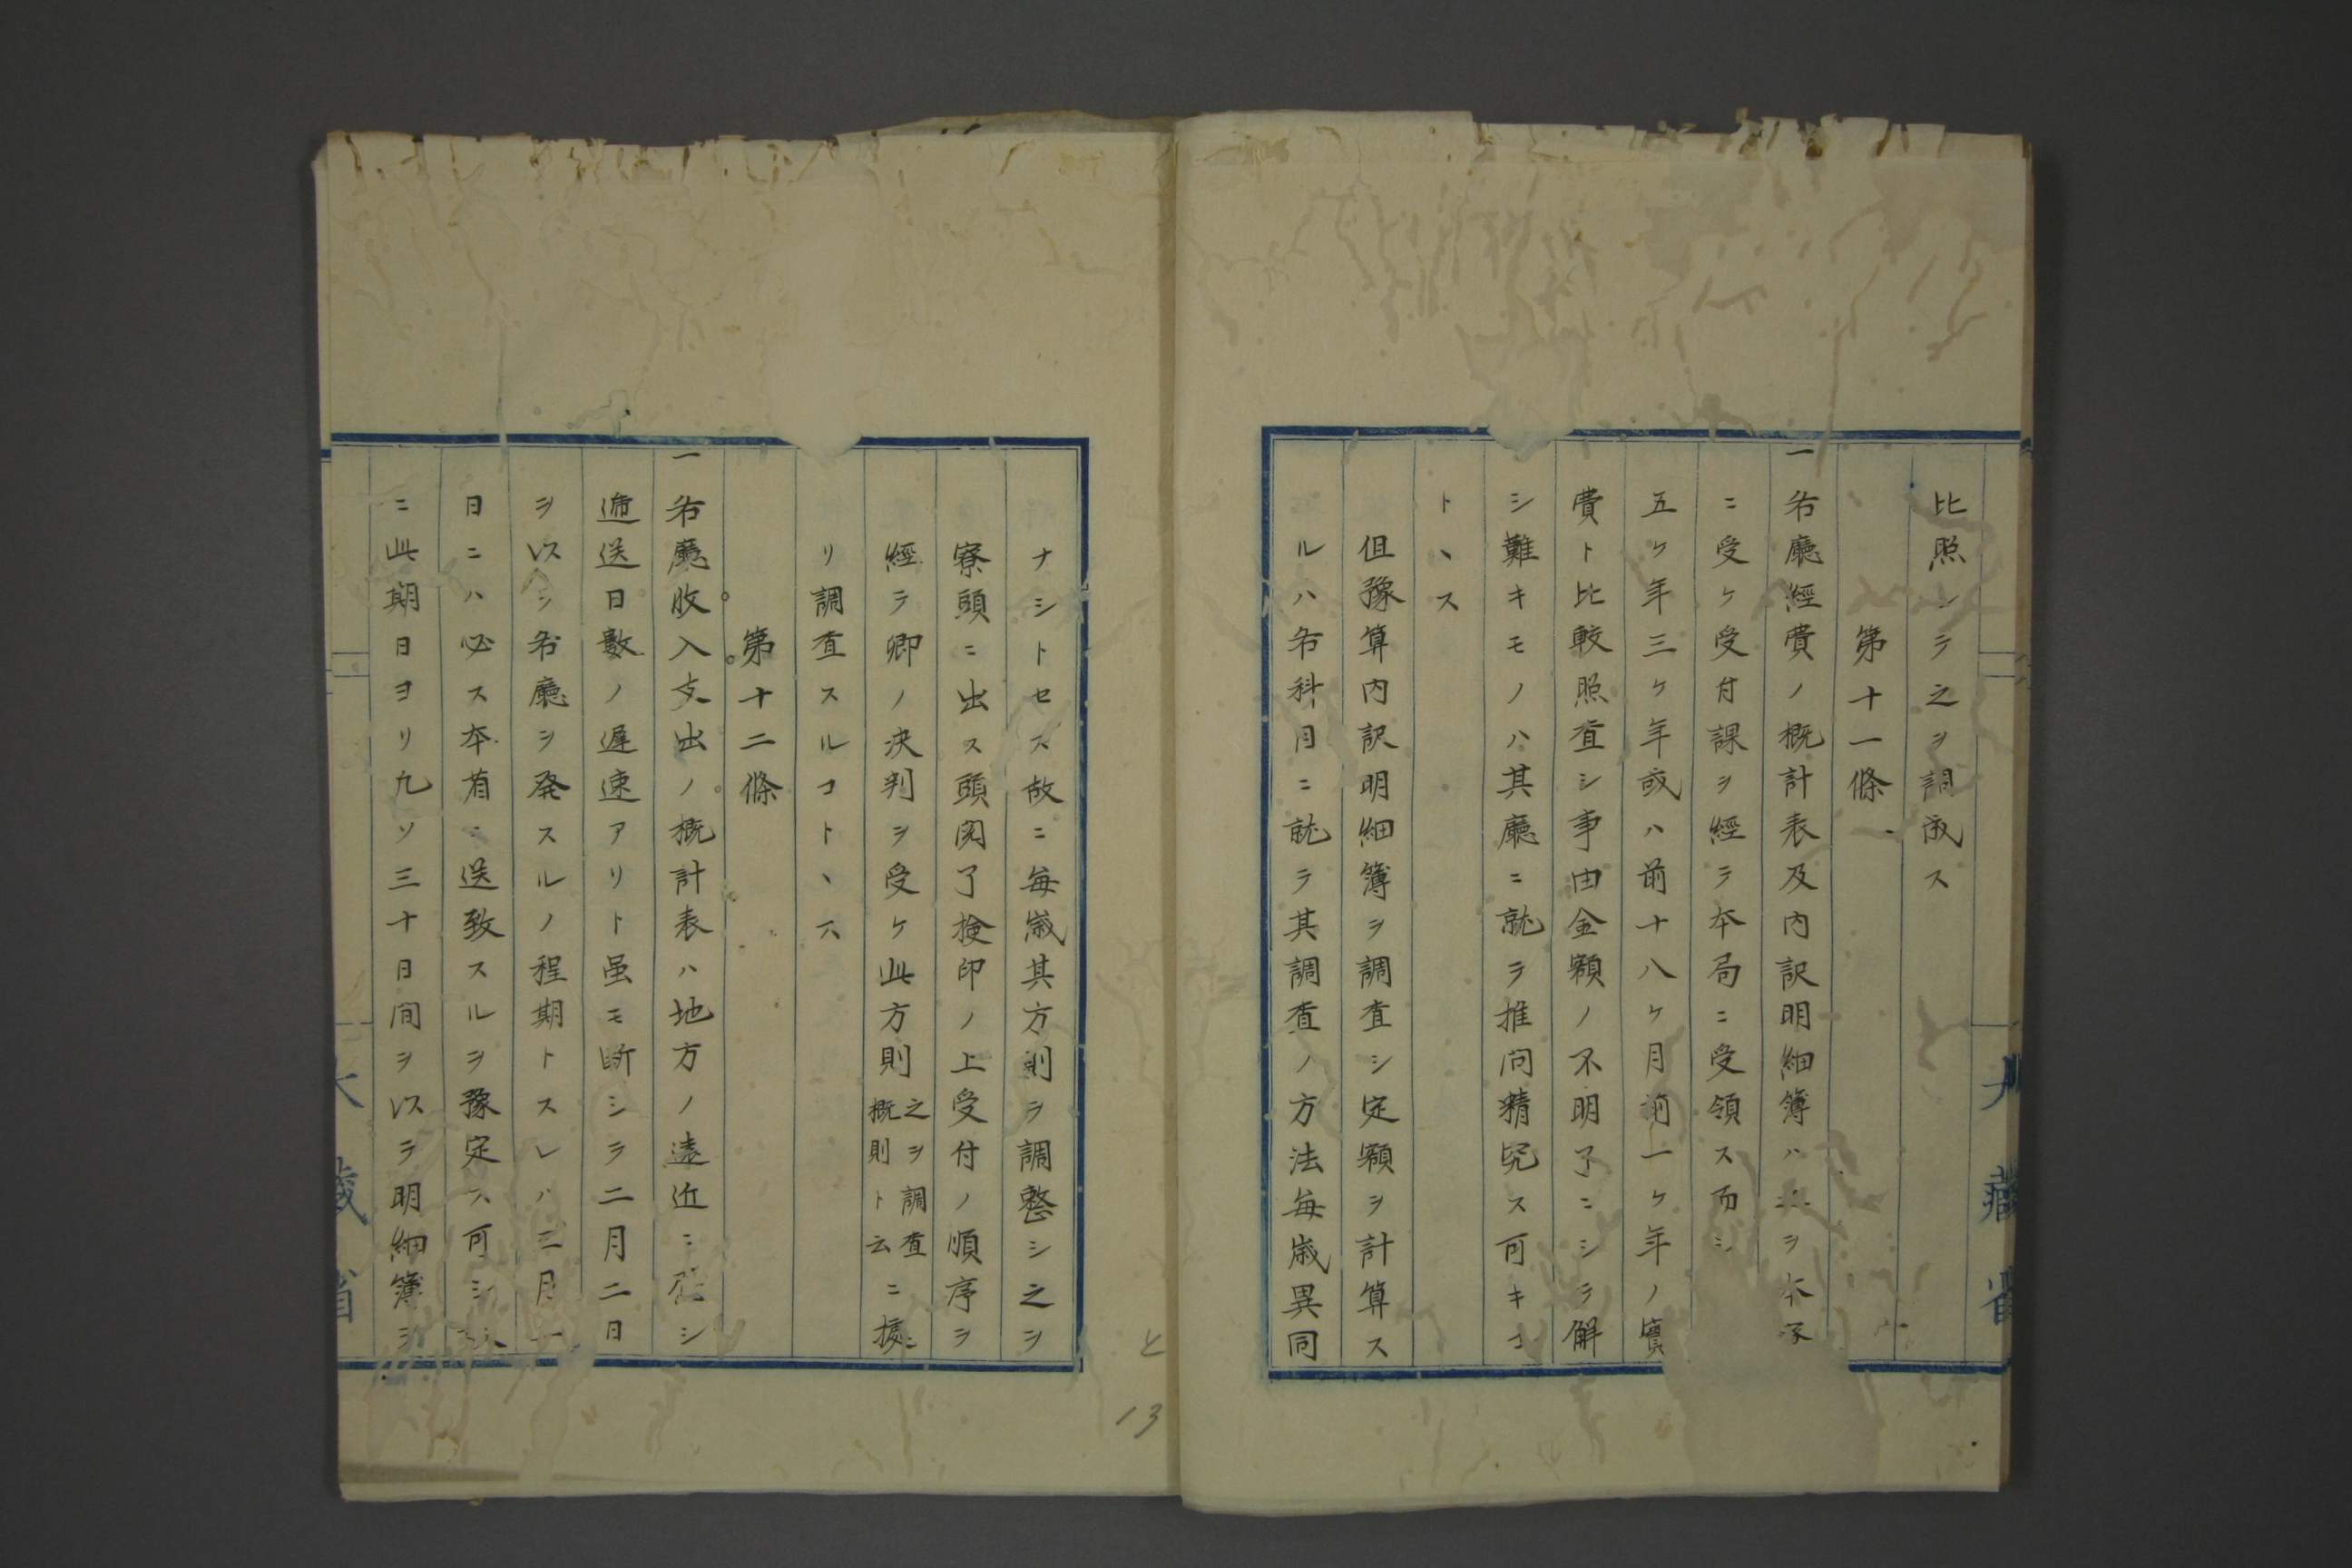 比照シテ之ヲ調成ス
第十一條
一各廳經費ノ概計表及内訳明細簿ハ之ヲ本寮
ニ受ケ受付課ヲ經テ本局ニ受領ス而シ
五ケ年三ケ年或ハ前十八ケ月前一ケ年ノ實
費ト比較照査シ事由金額ノ不明了ニシテ解
シ難キモノハ其廳ニ就テ推问精究ス可キコ
トヽス
但豫算内訳明細簿ヲ調査シ定額ヲ計算ス
ルハ各科目ニ就テ其調査ノ方法毎歳異同
ナシトセス故ニ毎歳其方則ヲ調整シ之ヲ
寮頭ニ出ス頭閲了撿印ノ上受付ノ順序ヲ
經テ卿ノ決判ヲ受ケ此方則之ヲ調査概則ト云ニ據
リ調査スルコトヽス
第十二條
一各廳收入支出ノ概計表ハ地方ノ遠近ニ應シ
遞送日數ノ遅速アリト虽モ断シテ二月二日
ヲ以テ各廳ヲ発スルノ程期トスレハ三月一
日ニハ必ス本省ニ送致スルヲ豫定ス可シ
ニ此期日ヨリ九ソ三十日间ヲ以テ明細簿ヲ
大藏省
大藏省
13